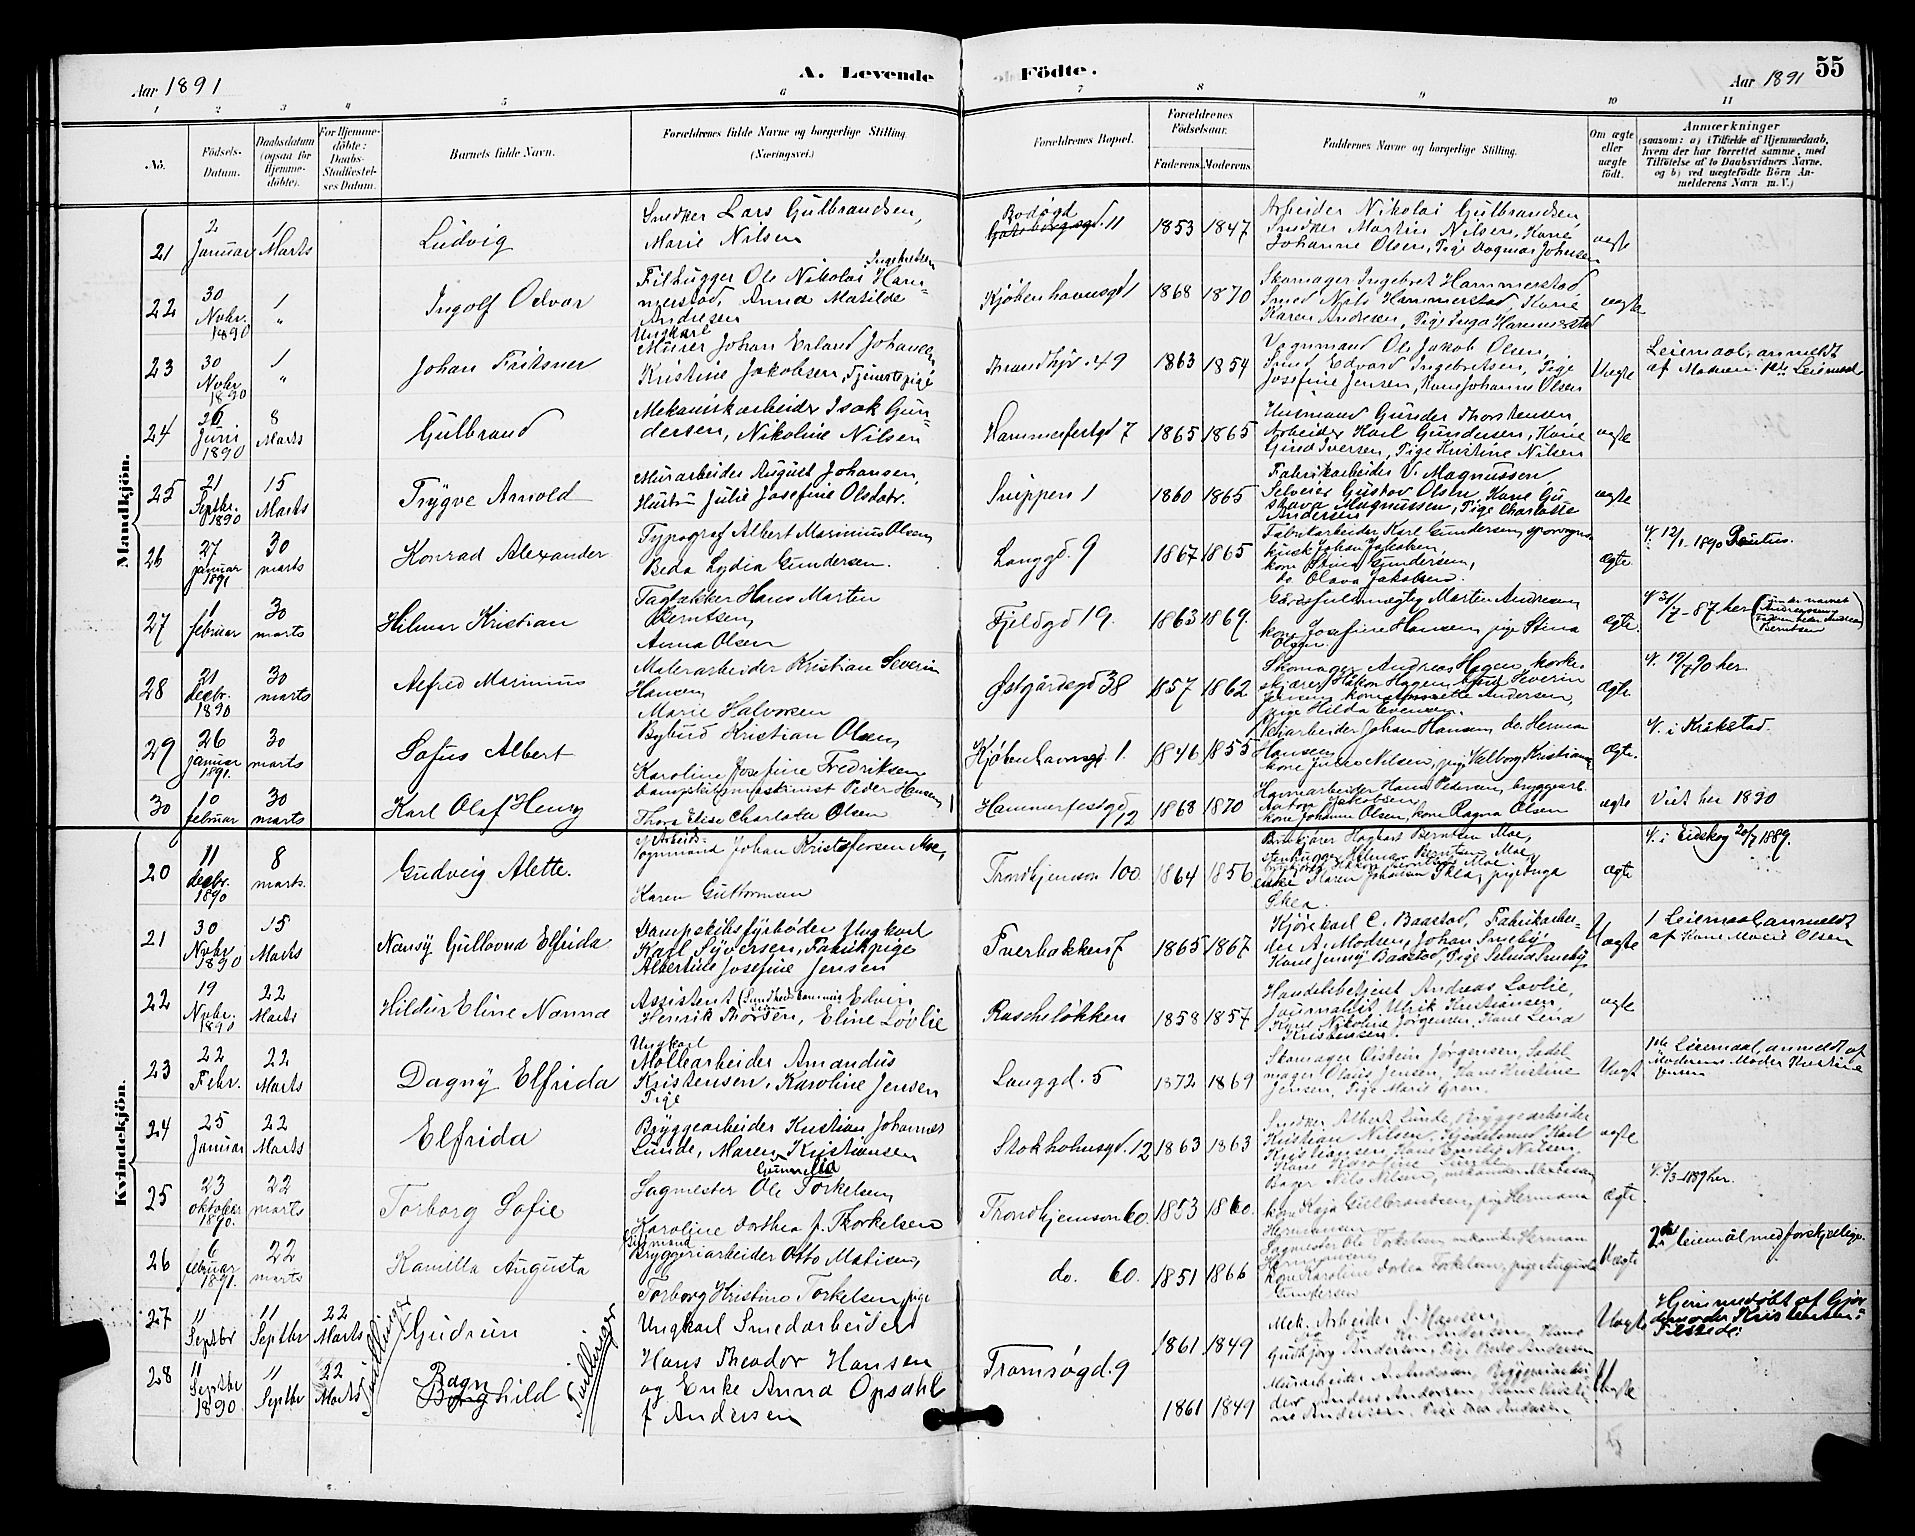 Aar 1891
A. Levende Födte.
Aar 1891
55
1 2 3 4 5 6 7 8 9 10 11
No.
Födsels-Datum.
Daabsdatum (ogsaa for Hjemme-döbte).
For Hjemme-döbte: Daabs-Stadfæstel-ses Datum.
Barnets fulde Navn.
Forældrenes fulde Navne og borgerlige Stilling. (Næringsvei.)
Forældrenes Bopæl.
Forældrenes Födselsaar.
Faderens. Moderens.
Faddernes Navne og borgerlige Stilling.
Om ægte eller uægte födt.
Anmærkninger
(saasom: a) i Tilfælde af Hjemmedaab, hvem der har forrettet samme, med Tilföielse af to Daabsvidners Navne, og b) ved uægtefödte Börn An-melderens Navn m. V.)
Mandkjön.
21 2 Januar 1 Marts Ludvig
Snedker Lars Gulbrandsen,
Marie Nilsen
Bodögd 11 1853 1847
Arbeider Nikolai Gulbrandsen,
Snedker Martin Nilsen, Kone
Johanne Olsen, Pige Dagmar Johnsen
ægte
22 30 Novbr. 1890 1 " Ingolf Odvar
Filhugger Ole Nikolai Ingebretsen Ham-
merstad, Anna Matilde
Andresen
Kjøbenhavnsgd 1 1868 1870
Skomager Ingebret Hammerstad
Smed Nils Hammerstad, Kone
Karen Andresen, Pige Inga Hammerstad
ægte
23 30 Novbr. 1890 1 " Johan Fritsner
Ungkarl
Murer Johan Erland Johansen
Kristine Jakobsen, Tjenestepige
Trondhjv. 49 1863 1854
Vognmand Ole Jakob Olsen,
Smed Edvard Ingebretsen, Pige
Josefine Jensen, Kone Johanne Olsen
Uægte
Leiemaal, anmeldt
af Moderen. 1ste Leiemaal
24 26 Juni 1890 8 Marts Gulbrand
Mekaniskarbeider Isak Gun-
dersen, Nikoline Nilsen
Hammerfestgd 7 1865 1865
Husmand Gunder Thorstensen
Arbeider Karl Gundersen, Kone
Gina Iversen, Pige Kristine Nilsen
ægte
25 21 Septbr. 1890 15 Marts Trygve Arnold
Murarbeider August Johansen,
Hustru Julie Josefine Olsdatr.
Snippen 1 1860 1865
Fabrikarbeider V. Magnussen,
Selveier Gustav Olsen, Kone Gu-
stava Magnussen, Pige Charlotte
Andersen
ægte
26 27 januar 1891 30 marts Konrad Alexander
Typograf Albert Marinius Olsen,
Beda Lydia Gundersen.
Langgd. 9 1867 1865
Fabrikarbeider Karl Gundersen, sporvogns-
kusk Johan Jakobsen,
kone Stina Gundersen,
do. Olava Jakobsen.
ægte
V. 12/1 1890 Paulus.
27 1 februar 30 marts Hilmar Kristian
Tagtækker Hans Martin
Berntsen,
Anna Olsen
Fjeldgd 19. 1863 1869.
Gårdsfuldmægtig Martin Andresen,
kone Josefine Hansen, pige Stina
Olsen
ægte.
V. 31/7-87 her
(under navnet Andreassen, Faderen heder Andreas Berntsen)
28 21 decbr. 1890 30 marts Alfred Marinius
Malerarbeider Kristian Severin
Hansen,
Marie Halvorsen
Østgårdsgd 38 1857 1862
Skomager Andreas Hagen, korke-
skjærer Håkon Hagen, Severin
Jensen, kone Andersen,
pige Hilda Evensen.
ægte
V. 19/7 90 her.
29 26 januar 1891. 30 marts Sofus Albert
Bybud Kristian Olsen,
Karoline Josefine Fredriksen
Kjøbenhavnsgd. 1. 1846 1855
arbeider Johan Hansen, do. Herman
Hansen,
kone Julie Nilsen, pige Valborg Kristiansen
ægte.
V. i Kråkstad.
30 10 februar 30 marts Karl Olaf Henry
Dampskibsmaskinist Peder Hansen,
Thora Elise Charlotte Olsen
Hammerfestgd 12 1868 1870
Havnarbeider Hans Pedersen, bryggearb.
Anton Jakobsen,
kone Johanne Olsen, kone Ragna Olsen
ægte
Viet her 1890
Kvindekjön.
20 11 decbr. 1890 8 marts. Gudveig Alette.
Arbeids-
Vognmand Johan Kristofersen Moe,
Karen Guttormsen
Trondhjemsvn 100. 1864 1856
Hagbart Berntsen Moe,
Stenhugger Hilmar Berntsen Moe,
enke Maren Johansen Skea, pige Inga
Skea.
ægte
V. i Eidskog 20/7 1889.
21 30 Novbr 1890 15 Marts Nansy Gullovna Elfrida
Dampskibsfyrbøder Ungkarl
Karl Syversen, Fabrikpige
Albertine Josefine Jensen
Tverbakken 7 1865 1867
Kjørekarl C. Baastad, Fabrikarbei-
der A. Modsen, Johan Smeby
Kone Jenny Baastad, Pige Selma Smeby
Uægte
1 Leiemaal, anmeldt
af Kone Marie Olsen
22 19 Novbr. 1890 22 Marts Hildur Eline Nanna
Assistent (Sundhedskommis) Edvin
Henrik Thorsen, Eline Lövlie
Rascheløkken 1858 1857
Handelsbetjent Andreas Lövlie,
Journalist Ulrik Kristiansen,
Kone Nikoline Jørgensen, Kone Lena
Kristensen
ægte
23 22 Febr. 22 Marts Dagny Elfrida
Ungkarl
Møllearbeider Amandus
Kristensen, Karoline Jensen
Pige
Langgd. 5 1872 1869
Skomager Eistein Jørgensen, Sadel-
mager Olaus Jensen, Kone Kristine
Jensen, Pige Marie Gren.
Uægt
1ste Leiemaal, anmeldt af
Moderens Moder Kristine
Jensen
24 25 Januar 22 Marts Elfrida
Bryggearbeider Kristian Johannes
Lunde, Maren Kristiansen
Stokholmsgd. 12 1863 1863
Snedker Albert Lunde, Bryggearbeider
Kristian Nilsen, Karl
Kristiansen, Kone Emily Nilsen,
Kone Karoline Lunde
ægte
25 23 oktober 1890. 22 marts Torborg Sofie
Sagmester Ole Torkelsen,
Karoline Dorthea f. Thorkelsen
Trondhjemsvn 60. 1853 1860.
Bager Nils Nilsen,
kone Kaja Gulbrandsen, pige Hermana
Hermansen
ægte.
V. 3/3-1889 her.
26 6 februar 1891. 22 marts Kamilla Augusta
Bryggeriarbeider Otto Matisen,
Torborg Kristine Torkelsen, pige
do. 60. 1851 1866
Sagmester Ole Torkelsen, Herman
Hermansen
kone Karoline Dortea Torkelsen, pige Augusta
Gundersen
Uægte
2det leiemål med forskjellige.
27 11 Septbr 11 Septbr 22 Marts Tvillinger Gudrun Tvillinger
Ungkarl Smedarbeider
1861 1849
Mek. Arbeider S. Hansen,
Andersen, Kone
Gudbjørg Andersen, Pige Andersen
Uægte
Hjemmedøbt af Gjor-
demoder Kristiansen
28 11 Septbr 1890. 11 Septbr 22 Marts Ragnhild
Hans Theodor Hansen
og Enke Anna Opsahl
f Andersen
Tromsøgd. 9
1861 1849
Murarbeider A. Andersen, Bryggeriarbei-
der Anders Andersen, Kone Kristi-
ne Andersen, Pige Andersen
Uægte